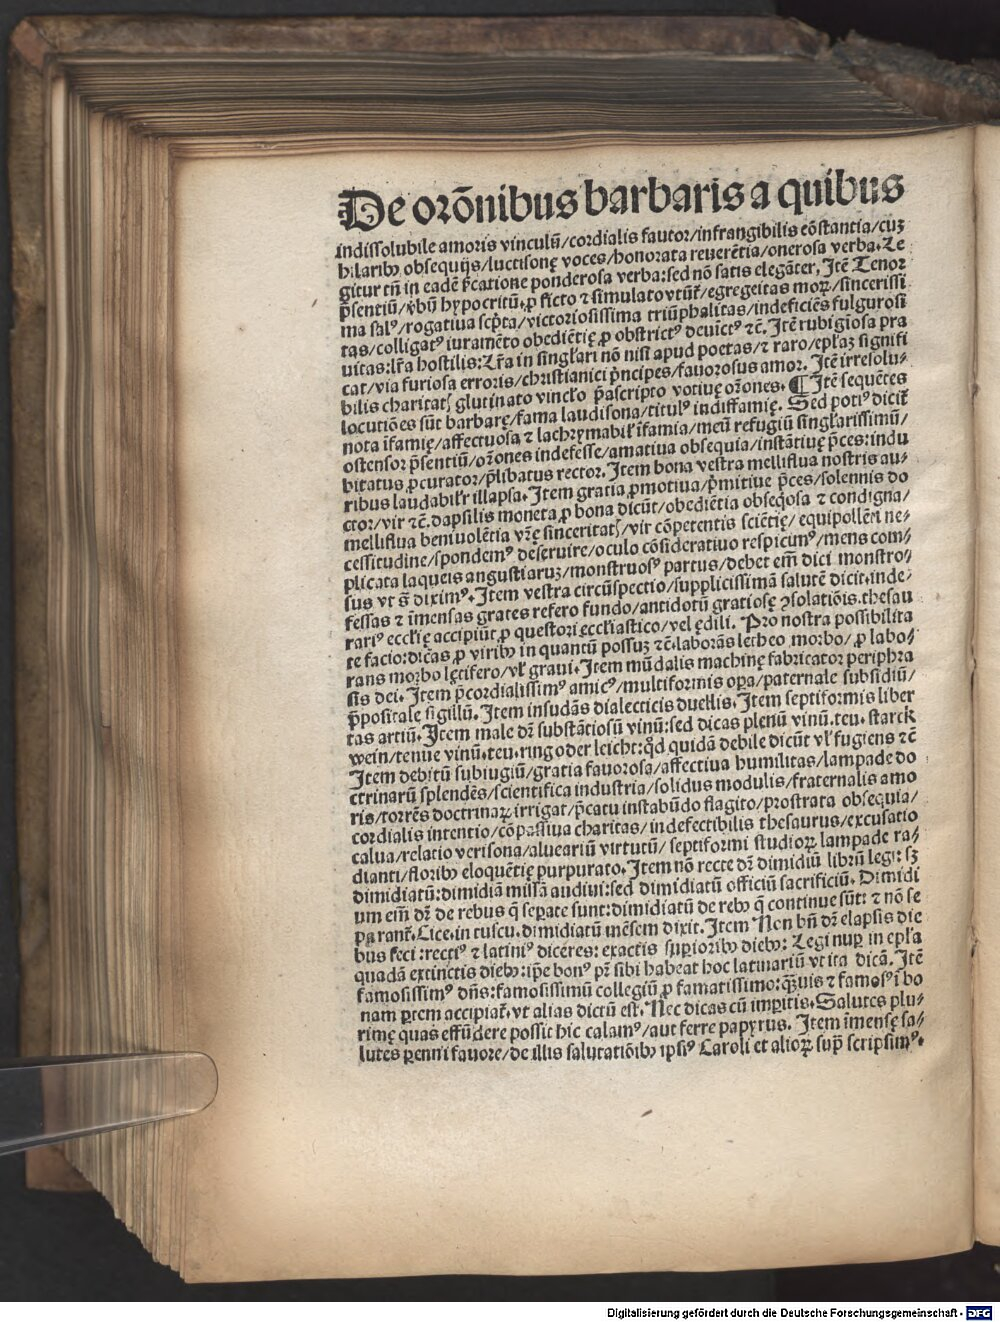 De orōnibus barbaris a quibus
indissolubile amoris vinculū/cordialis fautor/infrangibilis cōstantia/cuꝫ
hilaribꝰ obsequijs/luctisonę voces/honorata reuerētia/onerosa verba. Le
gitur tn̄ in eadē p̄catione ponderosa verba: sed nō satis elegāter, Itē Tenor
p̄sentiū/ v̓bū hypocritū. ꝓ ficto ⁊ simulato vtūt̄/egregeitas moꝝ/sincerissi
ma salꝰ/rogatiua scp̄ta/victoriosissima triūphalitas/indeficiēs fulgurosi
tas/colligatꝰ iuramēto obediētię ꝓ obstrictꝰ deuictꝰ ⁊c̄. Itē rubigiosa pra
uitas: lr̄a hostilis: Lr̄a in singl̓ari nō nisi apud poetas/⁊ raro/epl̓aꝫ signifi
cat/via furiosa erroris/christianici p̄ncipes/fauorosus amor. Itē irresolu⸗
bilis charitatꝭ glutinato vincl̓o p̄ascripto votiuę or̄ones. ¶ Itē sequētes
locutiōes sūt barbarę/fama laudisona/titulꝰ indiffamię. Sed potiꝰ dicit̄
nota īfamię/affectuosa ⁊ lachrymabil̓ īfamia/meū refugiū singl̓arissimū/
ostensor p̄sentiū/or̄ones indefesse/amatiua obsequia/instātiuę p̄ces: indu
bitatus ꝓcurator/p̄libatus rector. Item bona vestra melliflua nostris au⸗
ribus laudabilr̓ illapsa. Item gratia ꝓmotiua/p̄mitiue p̄ces/solennis do
ctor/vir ⁊c̄. dapsilis moneta ꝓ bona dicūt/obediētia obseq̄osa ⁊ condigna/
melliflua beniuolētia vr̄ę sinceritatꝭ/vir cōpetentis sciētię/ equipollēti ne⸗
cessitudine/spondemꝰ deseruire/oculo cōsideratiuo respicimꝰ/mens com⸗
plicata laqueis angustiaruꝫ/monstruosꝰ partus/debet em̄ dici monstro⸗
sus vt s̄ diximꝰ. Item vestra circūspectio/supplicissimā salutē dicit. inde⸗
fessas ⁊ īmensas grates refero fundo/antidotū gratiosę ꝯsolatiōis. thesau
rariꝰ eccl̓ię accipiūt ꝓ questori eccl̓iastico/vel ędili. Pro nostra possibilita
te facio: dicas ꝓ viribꝰ in quantū possuꝫ ⁊c̄. laborās letheo morbo/ ꝓ labo⸗
rans morbo lętifero/vl̓ graui. Item mūdalis machinę fabricator periphra
sis dei. Item p̄cordialissimꝰ amicꝰ/multiformis opa/paternale subsidiū/
p̄positale sigillū. Item insudās dialecticis duellis. Item septiformis liber
tas artiū. Item male dr̄ substātiosū vinū: sed dicas plenū vinū. teu. starck
wein/tenue vinū. teu. ring oder leicht: qd̓ quidā debile dicūt vl̓ fugiens ⁊c̄
Item debitū subiugiū/gratia fauorosa/affectiua humilitas/lampade do
ctrinarū splendēs/scientifica industria/solidus modulis/fraternalis amo
ris/torrēs doctrinaꝝ irrigat/p̄catu instabūdo flagito/prostrata obsequia/
cordialis intentio/cōpassiua charitas/indefectibilis thesaurus/excusatio
calua/relatio verisona/alueariū virtutū/ septiformi studioꝝ lampade ra⸗
dianti/floribꝰ eloquētię purpurato. Item nō recte dr̄ dimidiū librū legi: sꝫ
dimidiatū: dimidiā missā audiui: sed dimidiatū officiū sacrificiū. Dimidi
um em̄ dr̄ de rebus q̄ seꝑate sunt: dimidiatū de rebꝰ q̄ continue sūt: ⁊ nō se
parant̄. Cice. in tuscu. dimidiatū mēsem dixit. Item Non bn̄ dr̄ elapsis die
bus feci: rectiꝰ ⁊ latiniꝰ diceres: exactis superioribꝰ diebꝰ: Legi nuꝑ in epl̓a
quadā extinctis diebꝰ: ip̄e bonꝰ pr̄ sibi habeat hoc latinariū vt ita dicā. Itē
famosissimꝰ dn̄s: famosissimū collegiū ꝓ famatissimo: qꝫuis ⁊ famosꝰ ī bo
nam ꝑtem accipiat̄. vt alias dictū est. Nec dicas cū imꝑitis. Salutes plu⸗
rimę quas effūdere possit hic calamꝰ/aut ferre papyrus. Item īmensę sa⸗
lutes ꝑenni fauore/de illis salutatiōibꝰ ipsiꝰ Caroli et alioꝝ sup̄ scripsimꝰ.
Digitalisierung gefördert durch die Deutsche Forschungsgemeinschaft - DFG